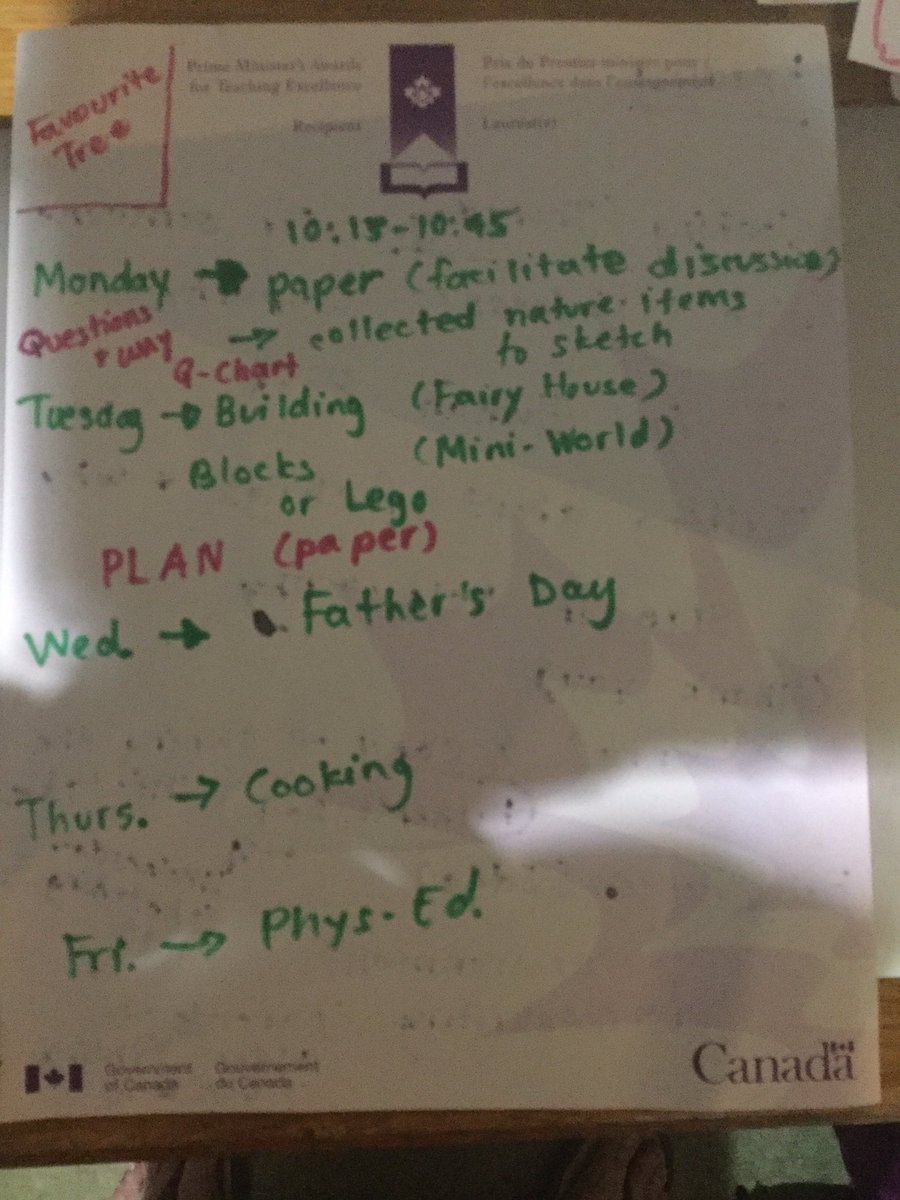 Favourite
Tree
Prime Minister's Awards
for Teaching Excellence
Recipient
Prix du Premier ministre pour
l'excellence dans l'enseignement
Lauréat(e)
10:15-10:45
Monday → paper (facilitate discussion)
Questions
+ why
→ collected nature items
to sketch
Q-Chart
Tuesday → Building (Fairy House)
(Mini-World)
Blocks
or Lego
PLAN (paper)
Wed. → Father's Day
Thurs. → Cooking
Fri. → Phys. Ed.
Government
of Canada
Gouvernement
du Canada
Canada